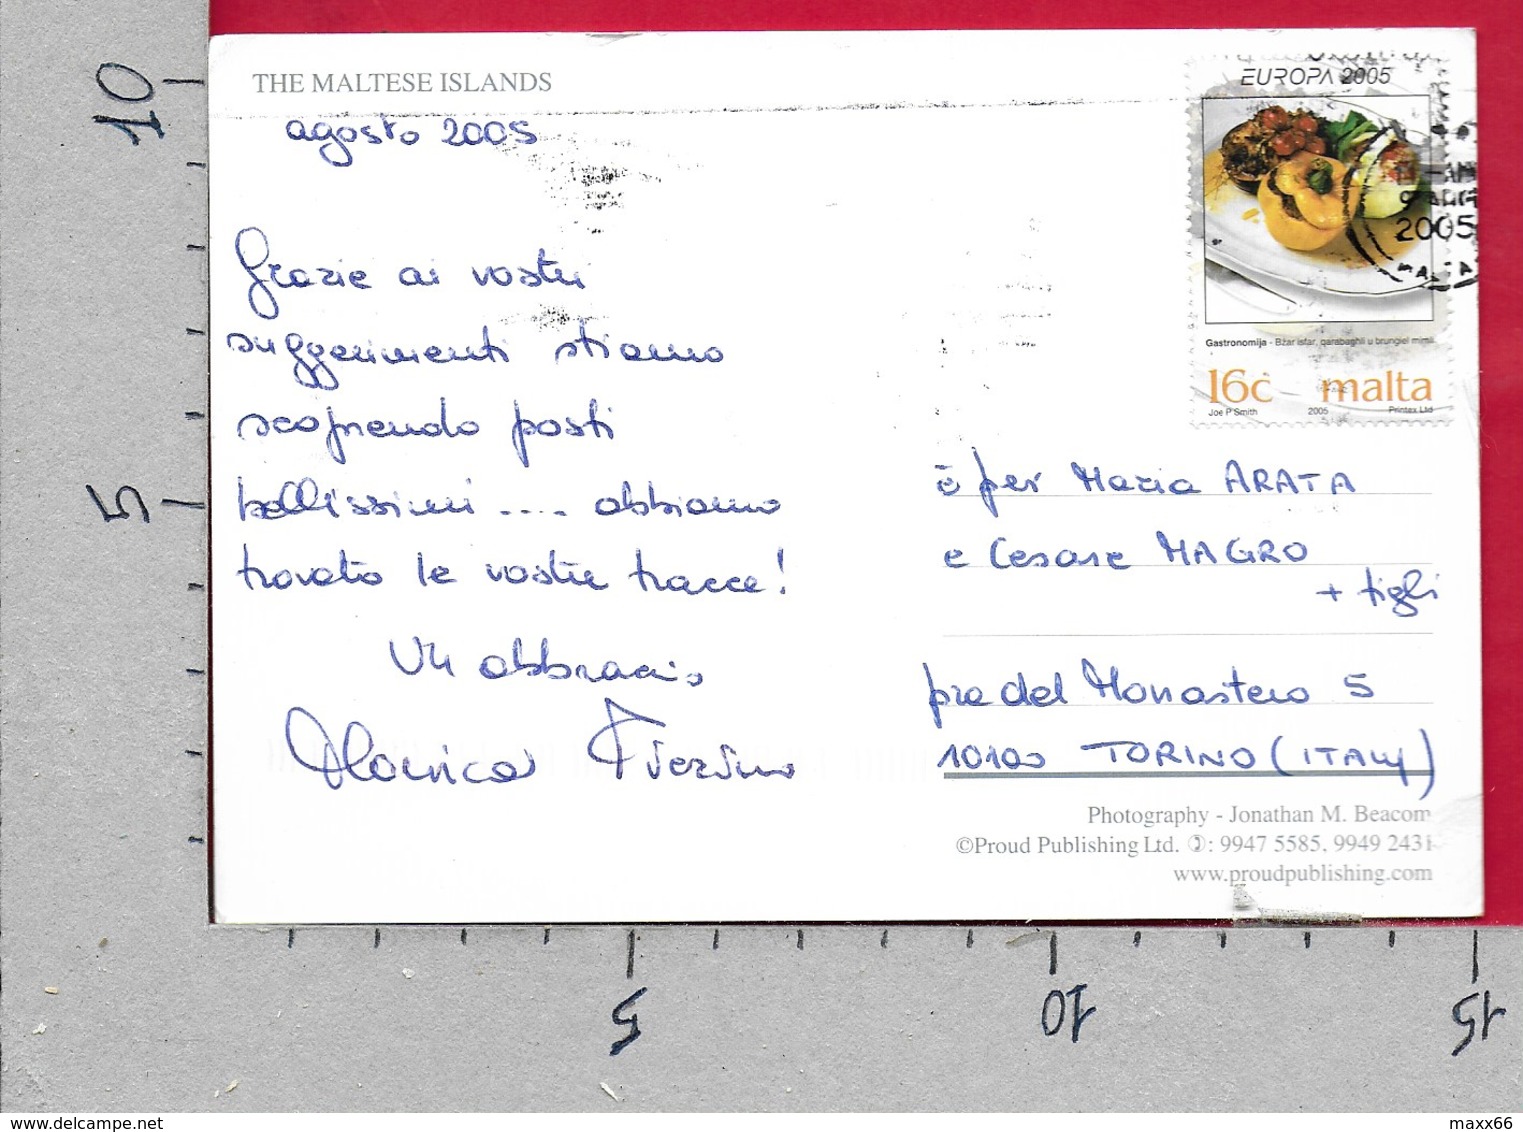 THE MALTESE ISLANDS
agosto 2005
Grazie ai vostri
suggerimenti stiamo
scoprendo posti
bellissimi .... abbiamo
trovato le vostre tracce!
Un abbraccio
Monica
EUROPA 2005
2005
MALTA
Gastronomija - Bżar isfar, qarabagħli u brunġiel mimli
16c malta
Joe P Smith 2005 Printex Ltd
è per Maria ARATA
e Cesare MAGRO
+ figli
pza del Monastero 5
10100 TORINO (ITALY)
Photography - Jonathan M. Beacom
©Proud Publishing Ltd. ✆: 9947 5585, 9949 2431
www.proudpublishing.com
10
5
5
10
15
www.delcampe.net
maxx66